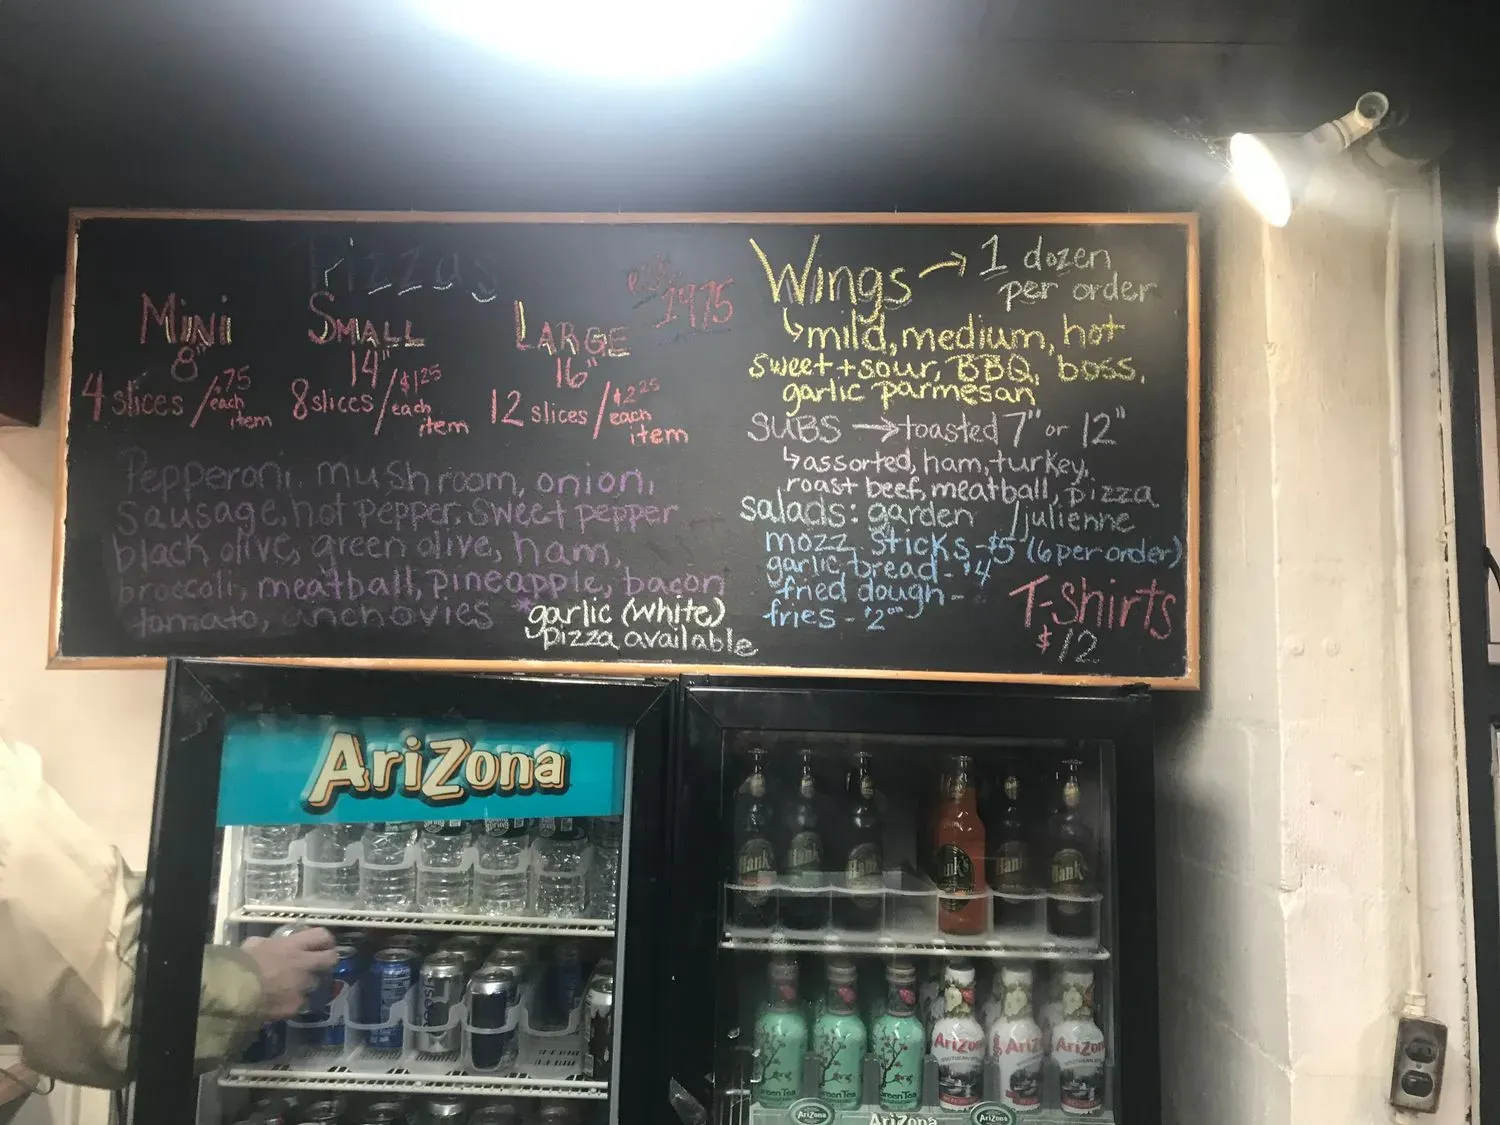 Pizzas
est. 1975
MINI
8"
4 slices / .75 each item
SMALL
14"
8 slices / $1.25 each item
LARGE
16"
12 slices / $2.25 each item
Pepperoni, mushroom, onion,
sausage, hot pepper, sweet pepper
black olive, green olive, ham,
broccoli, meatball, pineapple, bacon
tomato, anchovies
*garlic (white)
pizza available
Wings → 1 dozen
per order
↳mild, medium, hot
sweet + sour, BBQ, boss,
garlic parmesan
SUBS → toasted 7" or 12"
↳assorted, ham, turkey,
roast beef, meatball, pizza
salads: garden / julienne
mozz sticks - $5 (6 per order)
garlic bread - $4
fried dough -
fries - $2.00
T-Shirts
$12
AriZona
Hank's
AriZona
AriZona
AriZona
Green Tea
Green Tea
Green Tea
AriZona
AriZona
AriZona